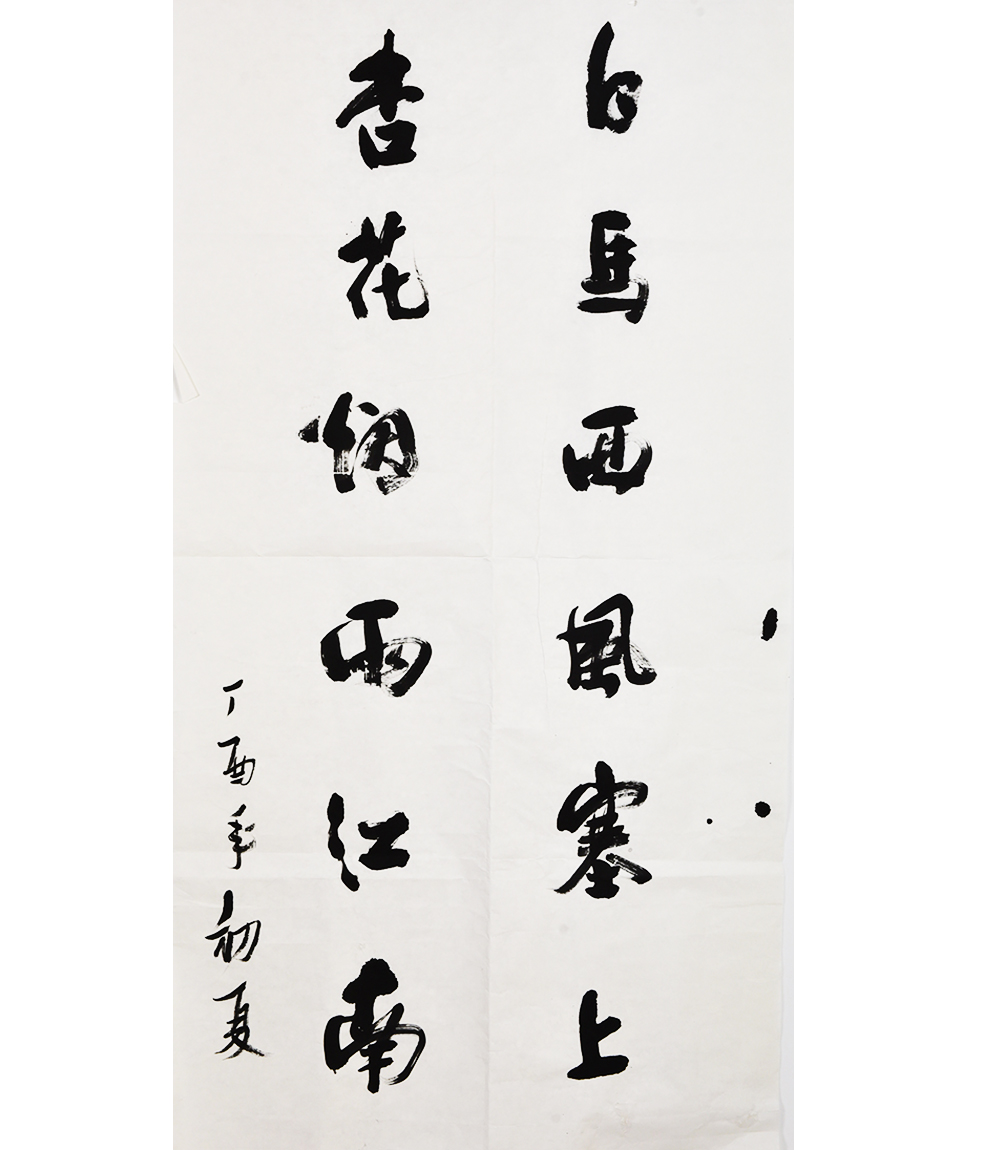 白马西风塞上
杏花烟雨江南
丁酉年初夏